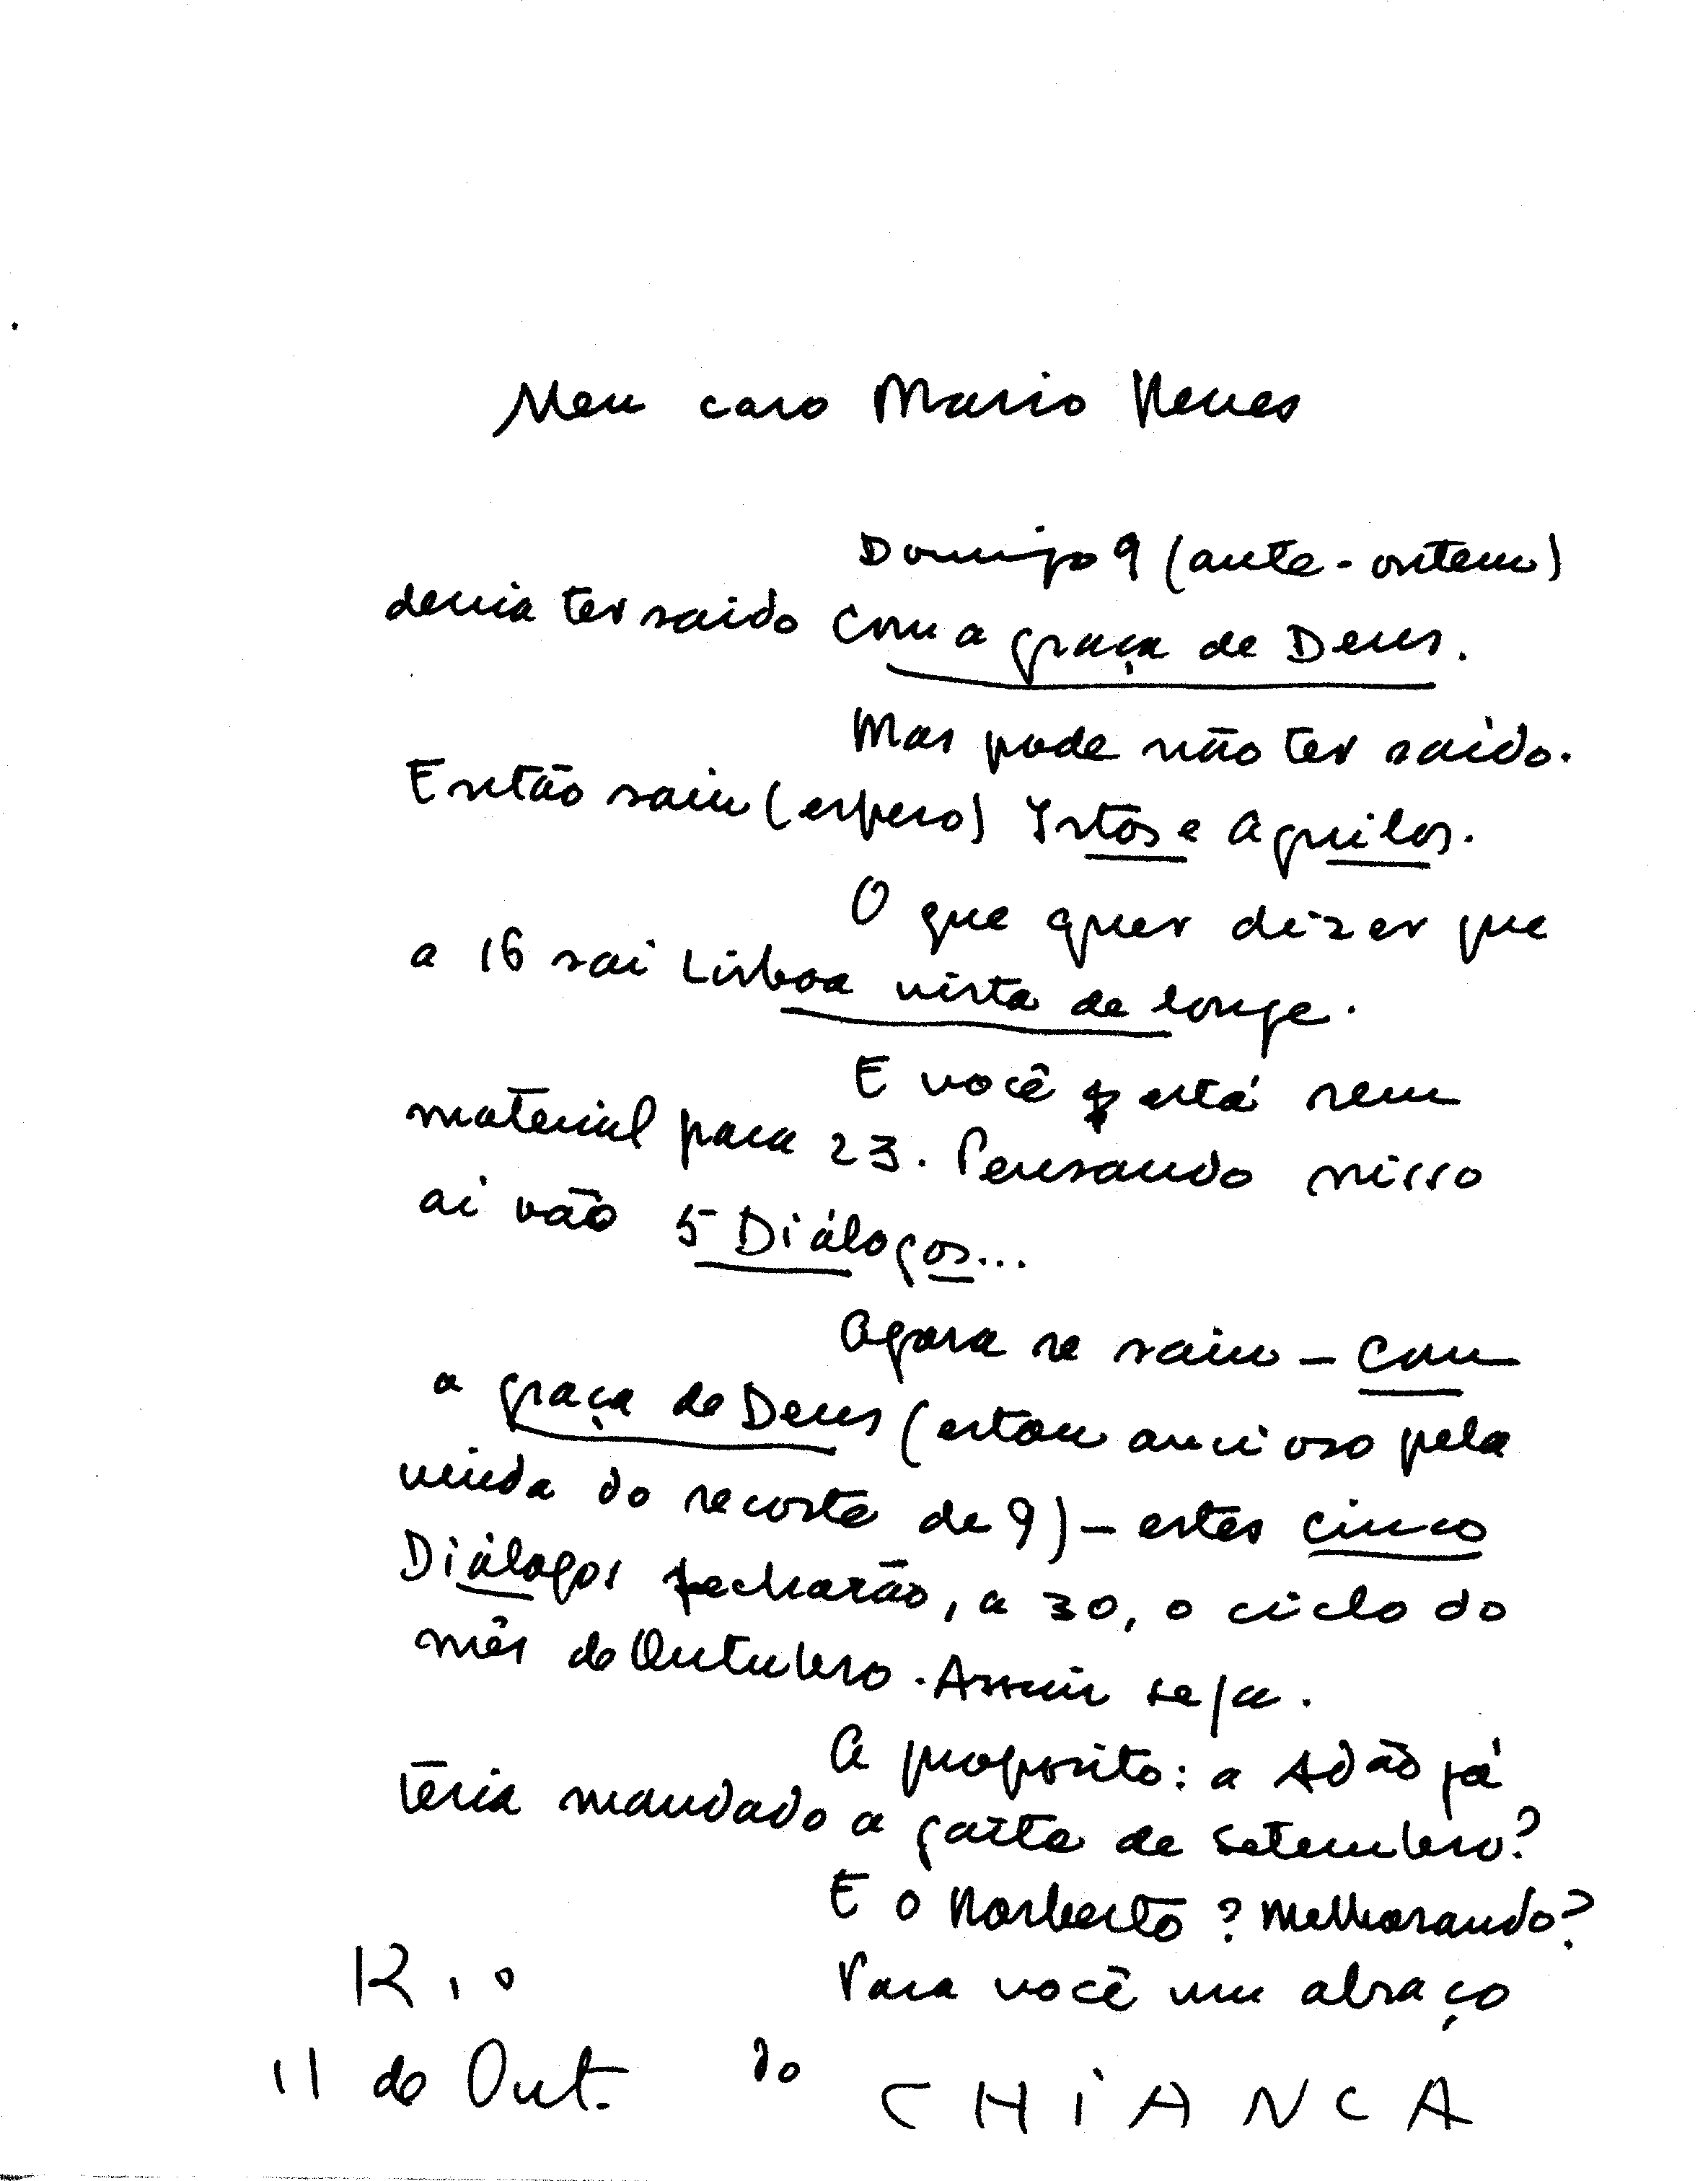 Meu caro Mario Neves
Domingo 9 (ante-ontem)
devia ter saido Com a graça de Deus.
Mas pode não ter saido.
Então saiu (espero) Istos e Aquilos.
O que quer dizer que
a 16 sai Lisboa vista de longe.
E você está sem
material para 23. Pensando nisso
ai vão 5 Diálogos...
Agora se saiu - Com
a graça de Deus (estou ancioso pela
vinda do recorte de 9) - estes cinco
Diálogos fecharão, a 30, o ciclo do
mês de Outubro. Assim seja.
A proposito: a Adão já
teria mandado a gaita de Setembro?
E o Norberto? Melhorando?
Para você um abraço
Rio
11 de Out. do CHIANCA